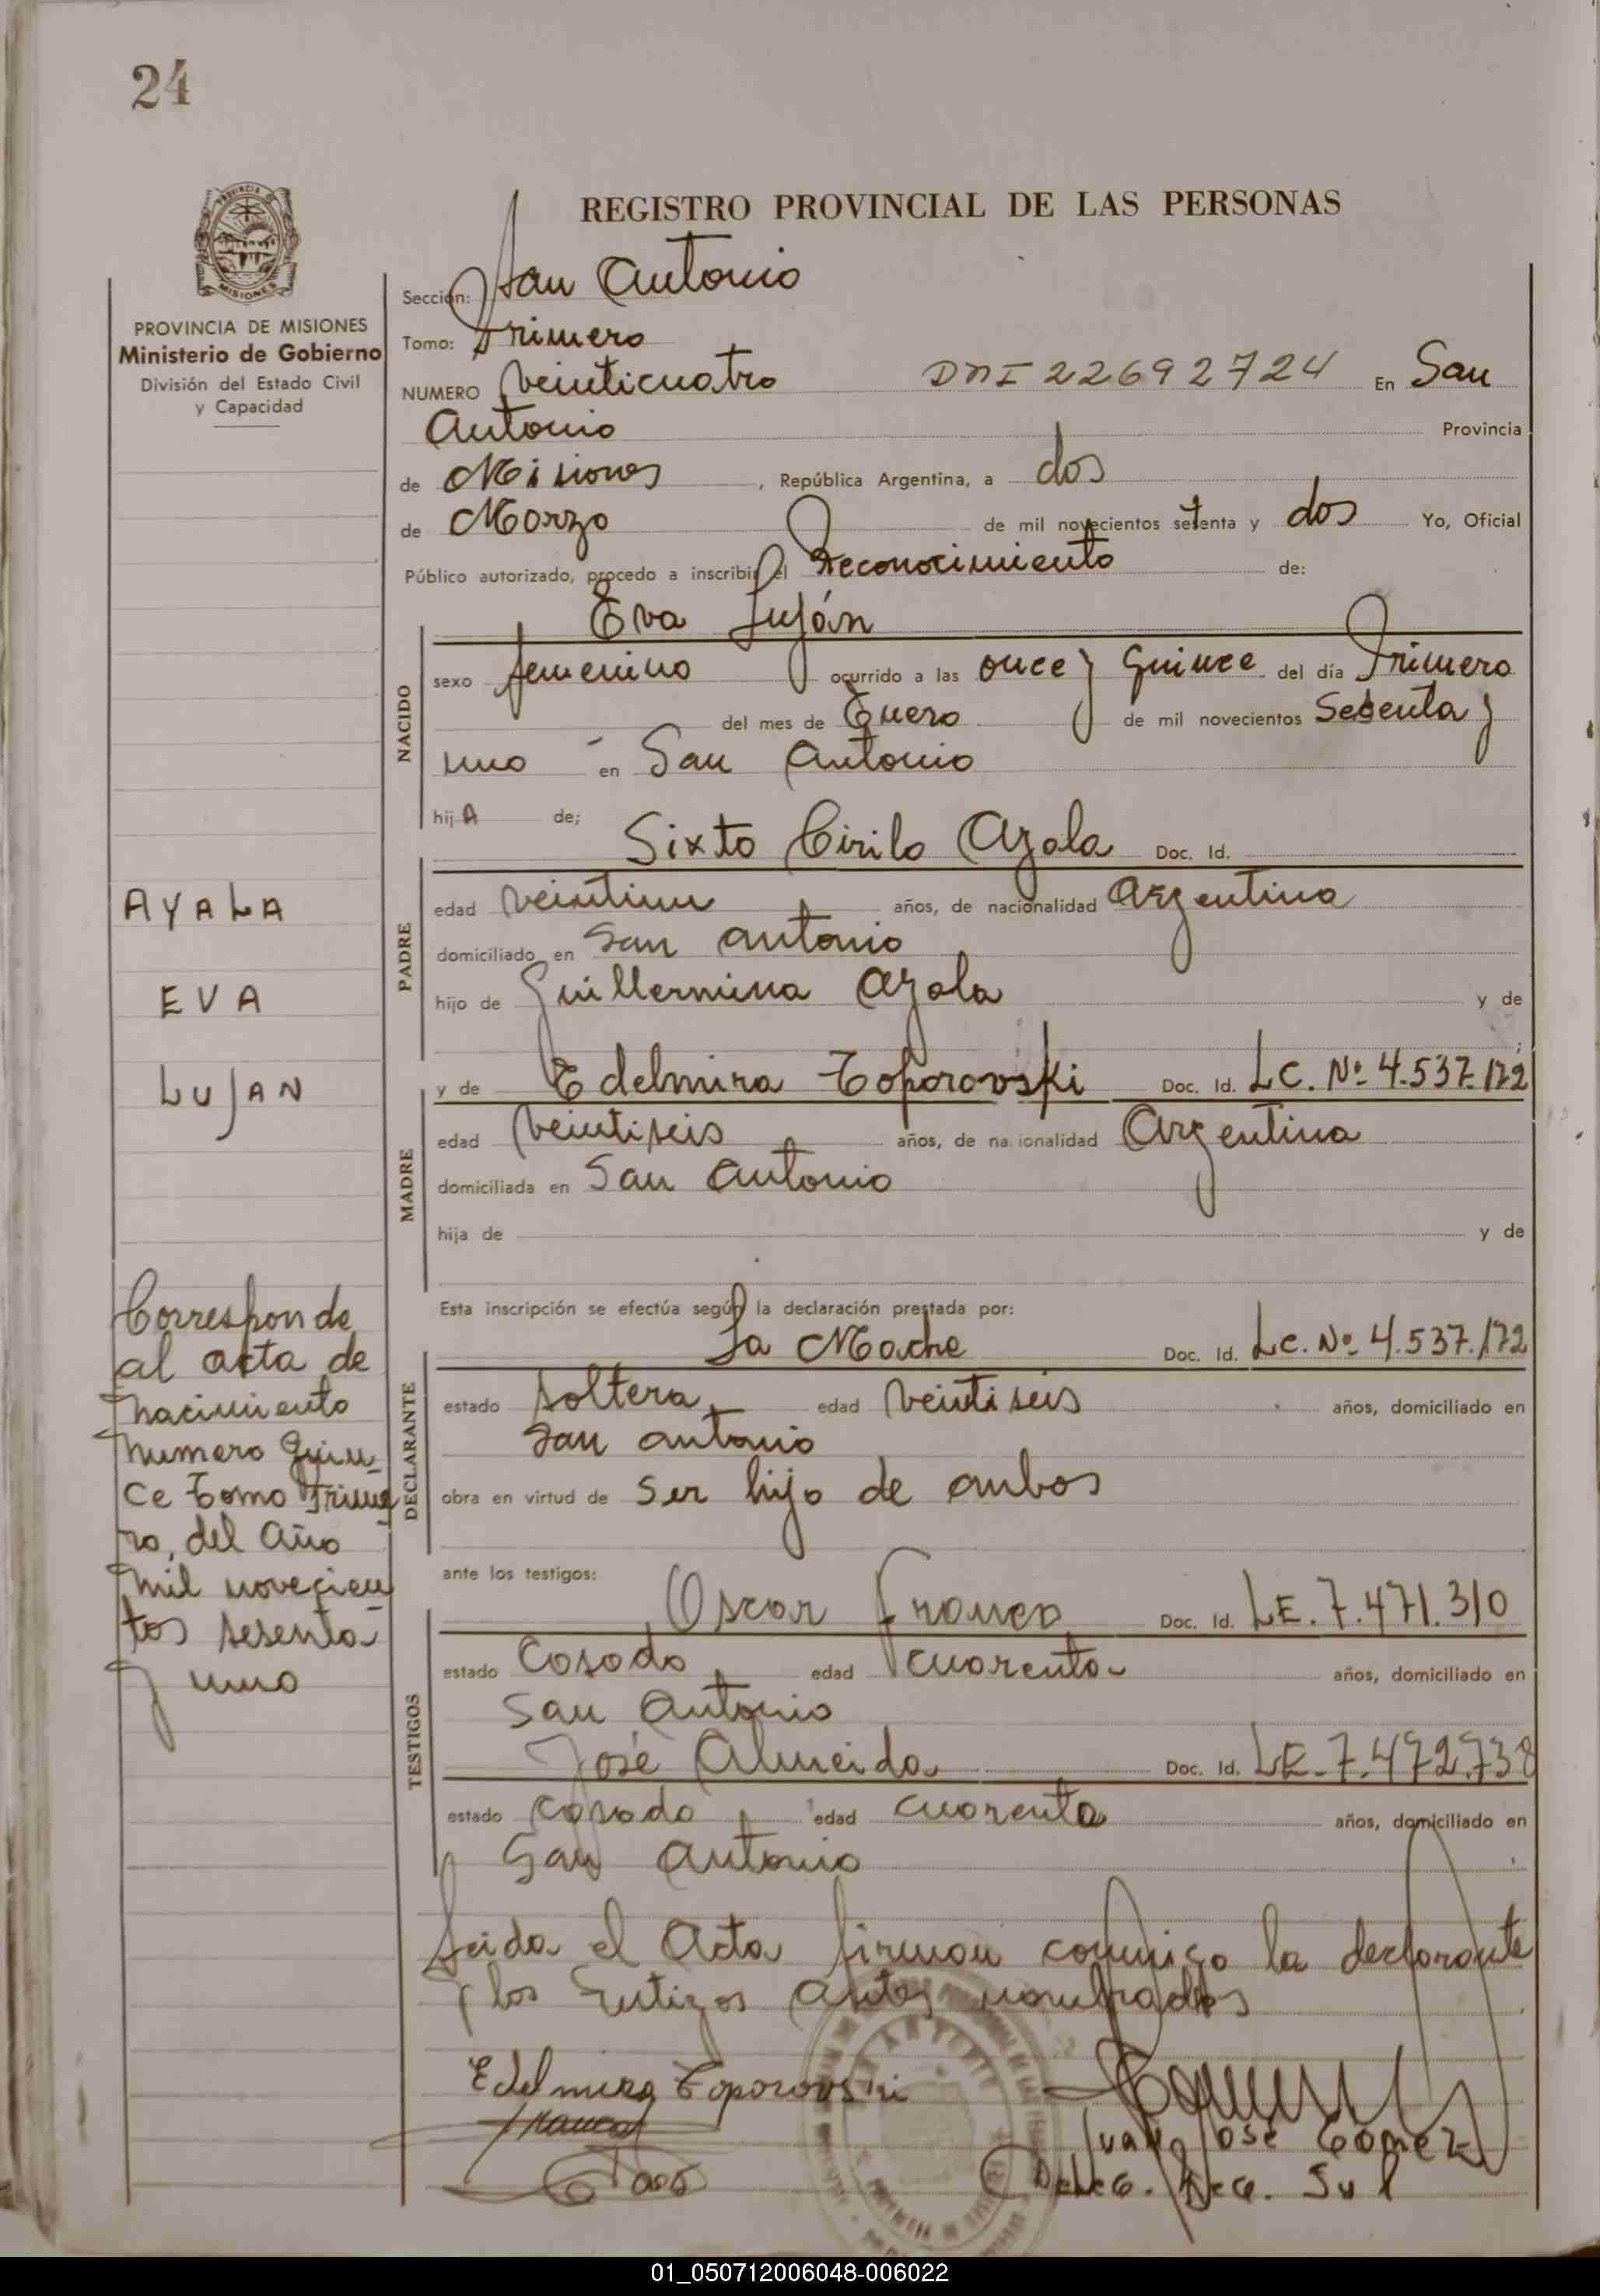 24
REGISTRO PROVINCIAL DE LAS PERSONAS
PROVINCIA DE MISIONES
Ministerio de Gobierno
División del Estado Civil
y Capacidad
Sección: San Antonio
Tomo: Primero
NUMERO Veinticuatro DNI 22692724 En San
Antonio Provincia
de Misiones, República Argentina, a dos
de Marzo de mil novecientos setenta y dos Yo, Oficial
Público autorizado, procedo a inscribir el Reconocimiento de:
Eva Luján
NACIDO
sexo femenino ocurrido a las once y quince del día Primero
del mes de Enero de mil novecientos Sesenta y
uno en San Antonio
hijA de;
Sixto Cirilo Ayala Doc. Id.
PADRE
edad veintiun años, de nacionalidad Argentina
domiciliado en San Antonio
hijo de Guillermina Ayala y de
y de Edelmira Toporovski Doc. Id. LC. Nº 4.537.172
MADRE
edad Veintiseis años, de nacionalidad Argentina
domiciliada en San Antonio
hija de y de
Esta inscripción se efectúa según la declaración prestada por:
La Madre Doc. Id. LC. Nº 4.537.172
DECLARANTE
estado soltera edad veintiseis años, domiciliado en
San Antonio
obra en virtud de ser hijo de ambos
ante los testigos:
Oscar Franco Doc. Id. LE. 7.471.310
TESTIGOS
estado Casado edad cuarenta años, domiciliado en
San Antonio
José Almeida Doc. Id. LE. 7.472.738
estado casado edad cuarenta años, domiciliado en
San Antonio
Leida el Acta firman conmigo la declarante
y los testigos antes nombrados
Edelmira Toporovski
Franco
Juan José Gomez
Deleg. Reg. Civil
AYALA
EVA
LUJAN
Corresponde
al acta de
nacimiento
numero Quin-
ce Tomo Prime-
ro, del Año
mil novecien-
tos sesenta
y uno
01_050712006048-006022